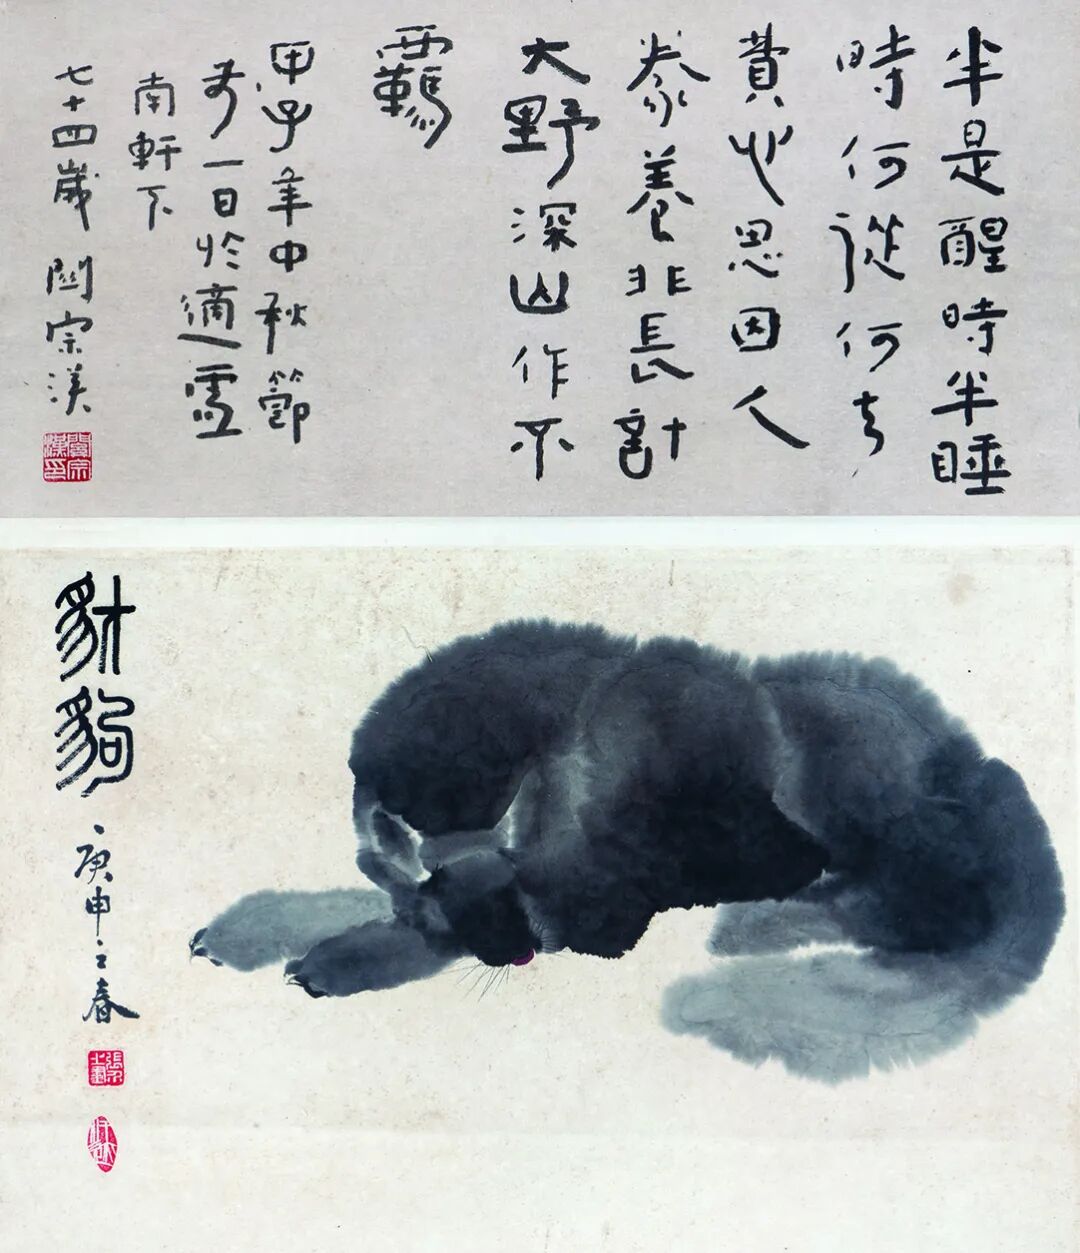 半是醒時半睡
時何從何去
費心思因人
豢養非長計
大野深山作不
覊
甲子年中秋節
前一日於適雪
南軒下
七十四歲 關宗漢
關宗漢印
豺豿
庚申之春